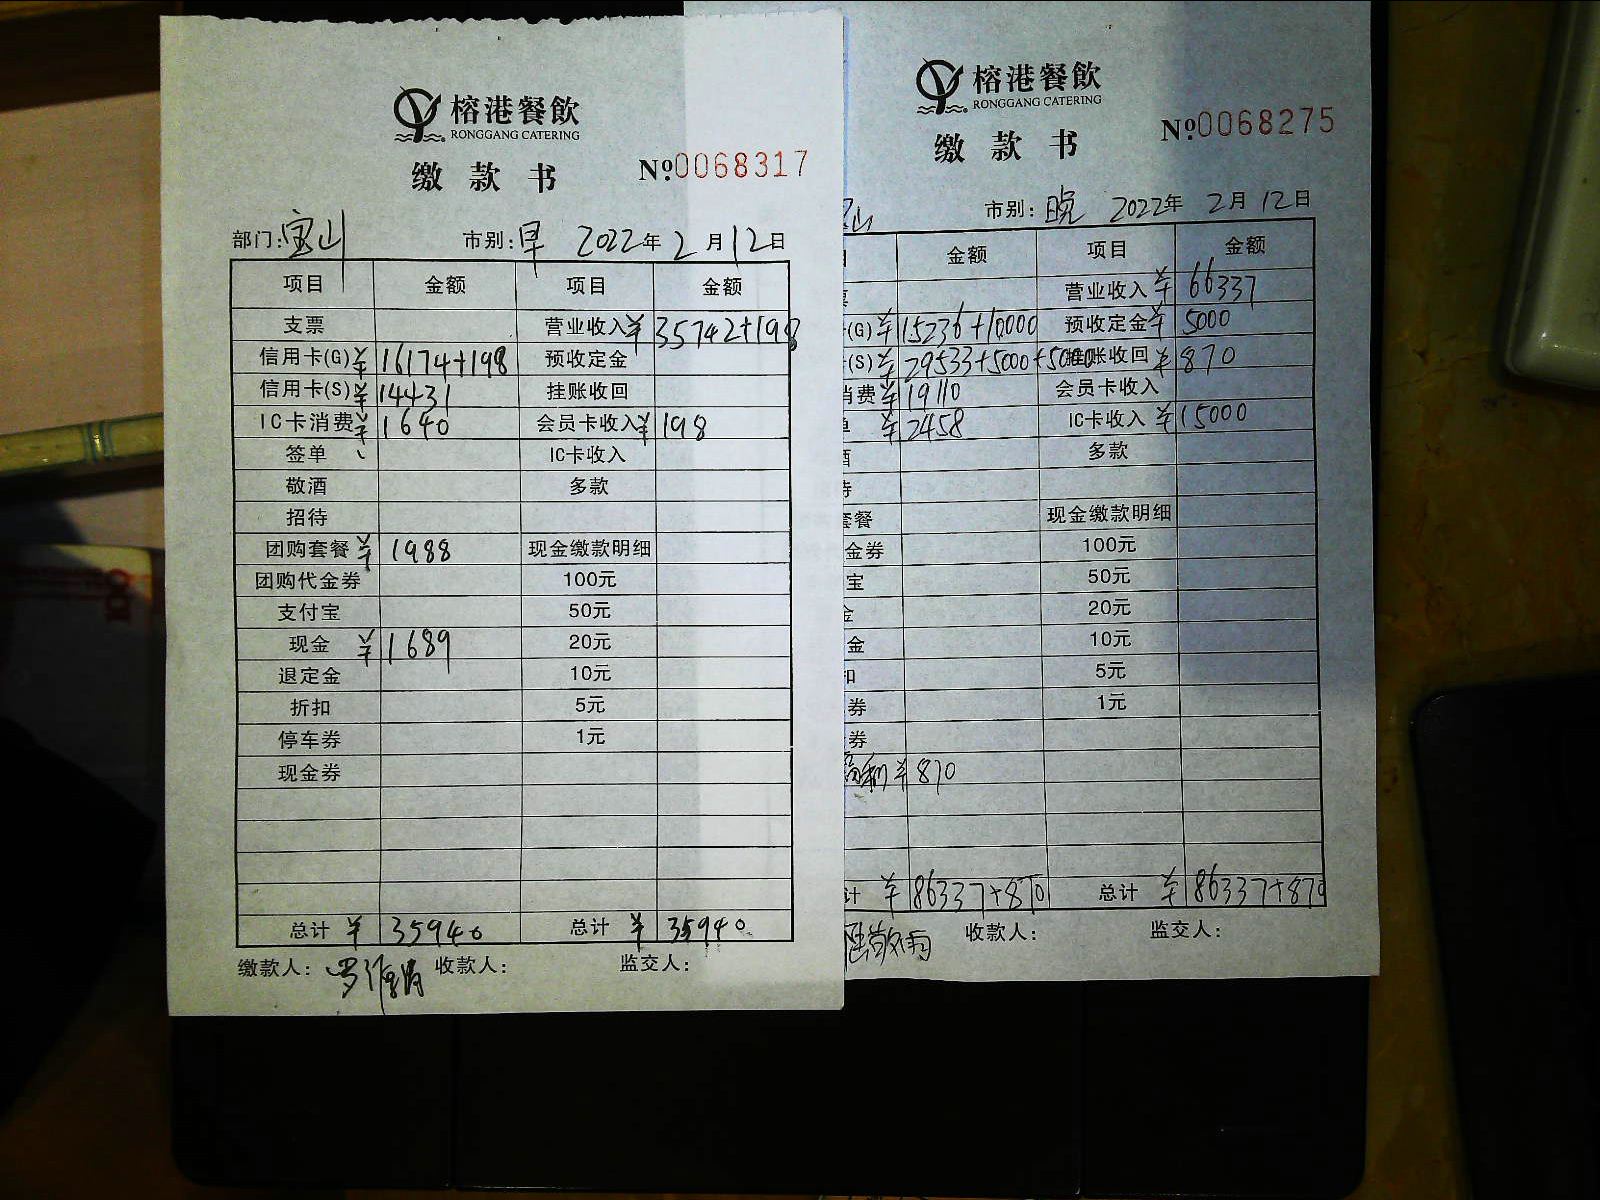 榕港餐飲
RONGGANG CATERING
缴款书 №0068317
部门:宝山 市别:早 2022年2月12日
项目 金额 项目 金额
支票 营业收入 ¥35742+198
信用卡(G) ¥16174+198 预收定金
信用卡(S) ¥14431 挂账收回
IC卡消费 ¥1640 会员卡收入 ¥198
签单 IC卡收入
敬酒 多款
招待
团购套餐 ¥1988 现金缴款明细
团购代金券 100元
支付宝 50元
现金 ¥1689 20元
退定金 10元
折扣 5元
停车券 1元
现金券
总计 ¥35940 总计 ¥35940
缴款人: 收款人: 监交人:
榕港餐飲
RONGGANG CATERING
缴款书 №0068275
山 市别:晚 2022年2月12日
金额 项目 金额
营业收入 ¥66337
(G) ¥15236+10000 预收定金 ¥5000
(S) ¥29533+5000+5000 挂账收回 ¥870
消费 ¥19110 会员卡收入
单 ¥2458 IC卡收入 ¥15000
酒 多款
待
套餐 现金缴款明细
金券 100元
宝 50元
金 20元
金 10元
扣 5元
券 1元
券
¥870
计 ¥86337+870 总计 ¥86337+870
收款人: 监交人: